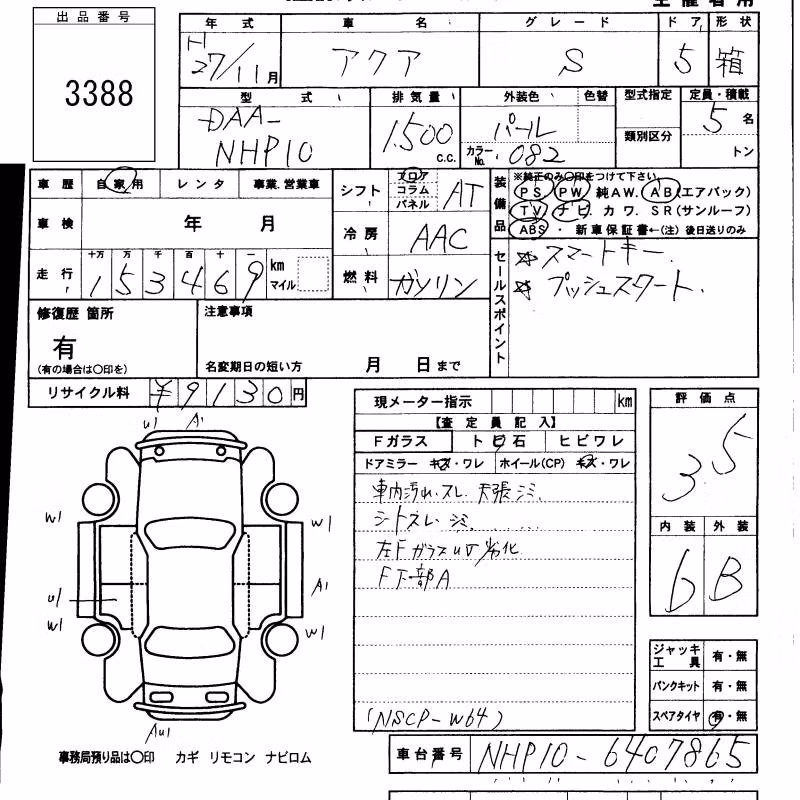 出品番号
3388
年式 車名 グレード ドア 形状
H27/11月 アクア S 5 箱
型式 排気量 外装色 色替 型式指定 定員・積載
DAA-NHP10 1500 c.c. パール 類別区分 5名
カラーNo. 082 トン
車歴 自家用 レンタ 事業.営業車 シフト フロア コラム パネル AT
装備品 ※純正のみ〇印をつけて下さい
PS PW 純AW. AB(エアバック)
TV ナビ. カワ. SR(サンルーフ)
ABS・新車保証書←(注) 後日送りのみ
車検 年 月 冷房 AAC
走行 十万 万 千 百 十 一
153469 km マイル 燃料 ガソリン
セールスポイント
☆スマートキー.
☆プッシュスタート.
修復歴 箇所 注意事項
有
(有の場合は〇印を) 名変期日の短い方 月 日まで
リサイクル料 ¥9130円
現メーター指示 km
【査定員記入】
Fガラス トビ石 ヒビワレ
ドアミラー キズ・ワレ ホイール(CP) キズ・ワレ
車内汚れ.スレ. 天張シミ.
シートスレ.シミ.
左FガラスUV劣化
F下部A
(NSCP-W64)
評価点
3.5
内装 外装
6 B
ジャッキ工具 有・無
パンクキット 有・無
スペアタイヤ 有・無
U1 A1
W1 W1
U1 A1
W1 W1
AU1
事務局預り品は〇印 カギ リモコン ナビロム
車台番号 NHP10-6407865